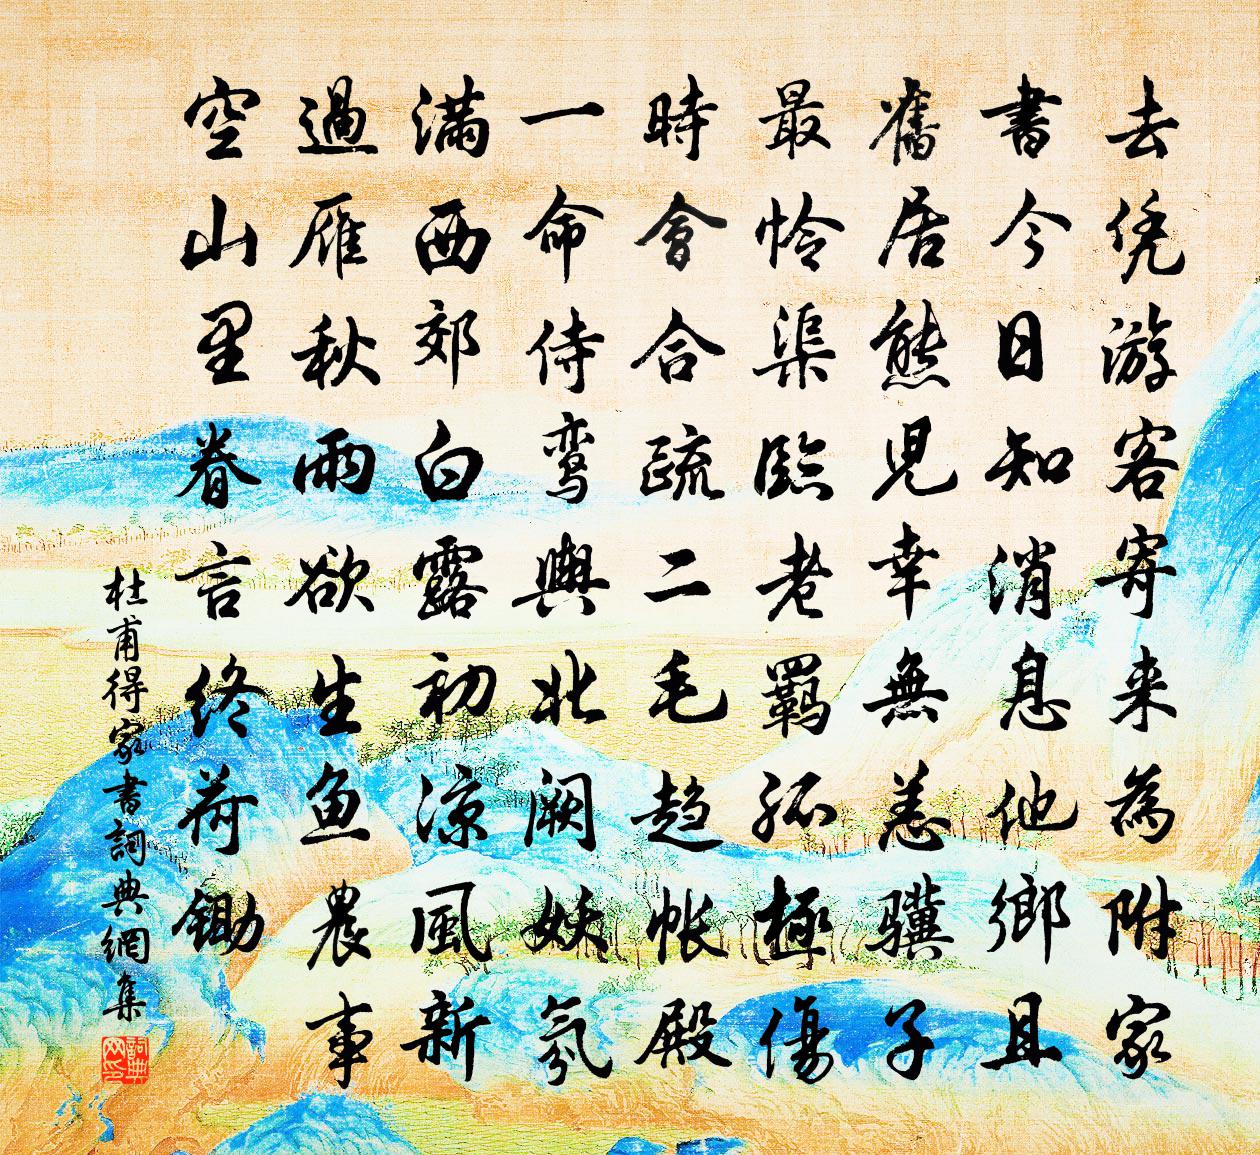 去凭游客寄来為附家
書今日知消息他鄉且
舊居熊児幸無恙骥子
最怜渠臨老羈孤極傷
時會合疏二毛趋帐殿
一命侍鸾輿北阙妖氛
满西郊白露初涼風新
過雁秋雨欲生鱼農事
空山里眷言终荷鋤
杜甫得家書詞典網集
詞典网印